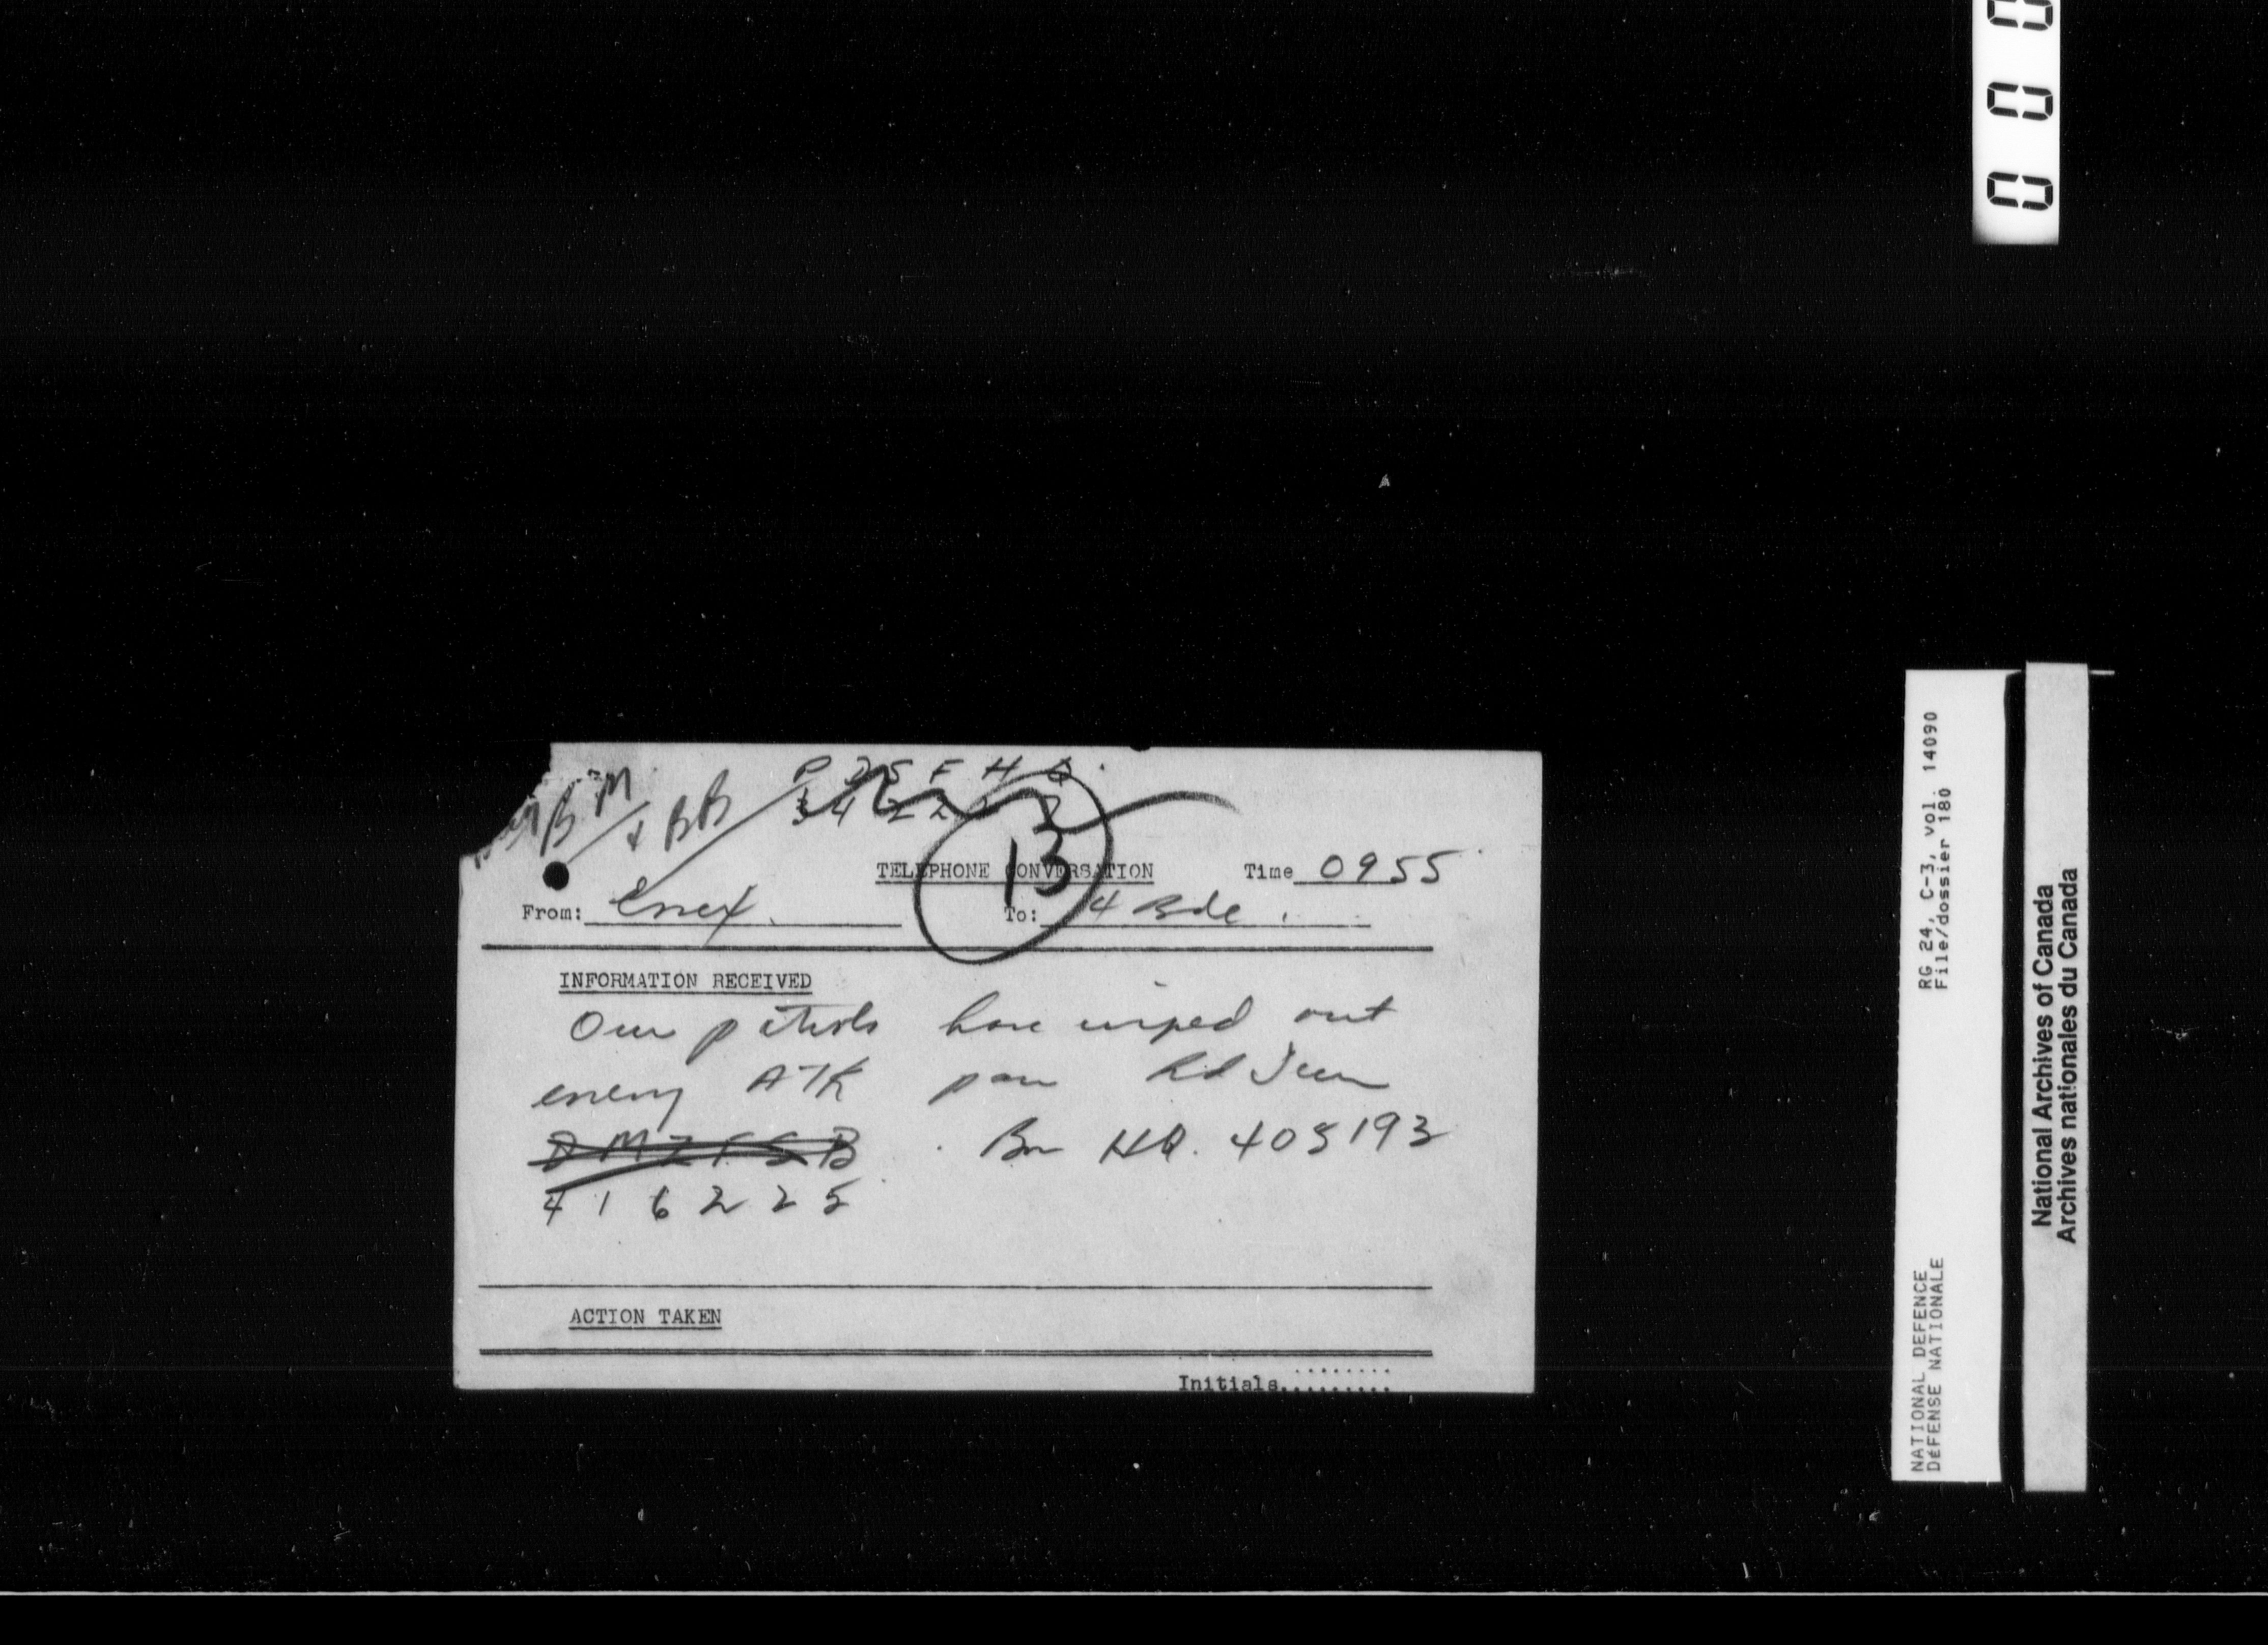 0 0 0
BM
& BB
P Z S F H Q
3 4 2 2
13
TELEPHONE CONVERSATION Time 0955
From: Essex. To: 4 Bde.
INFORMATION RECEIVED
Our patrols have wiped out
enemy ATK
Bn HQ. 405193
416225
ACTION TAKEN
Initials.........
RG 24, C-3, vol. 14090
File/dossier 180
NATIONAL DEFENCE
DÉFENSE NATIONALE
National Archives of Canada
Archives nationales du Canada